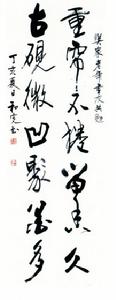 重帘不捲留香久
古硯微凹聚墨多
丁亥夏日